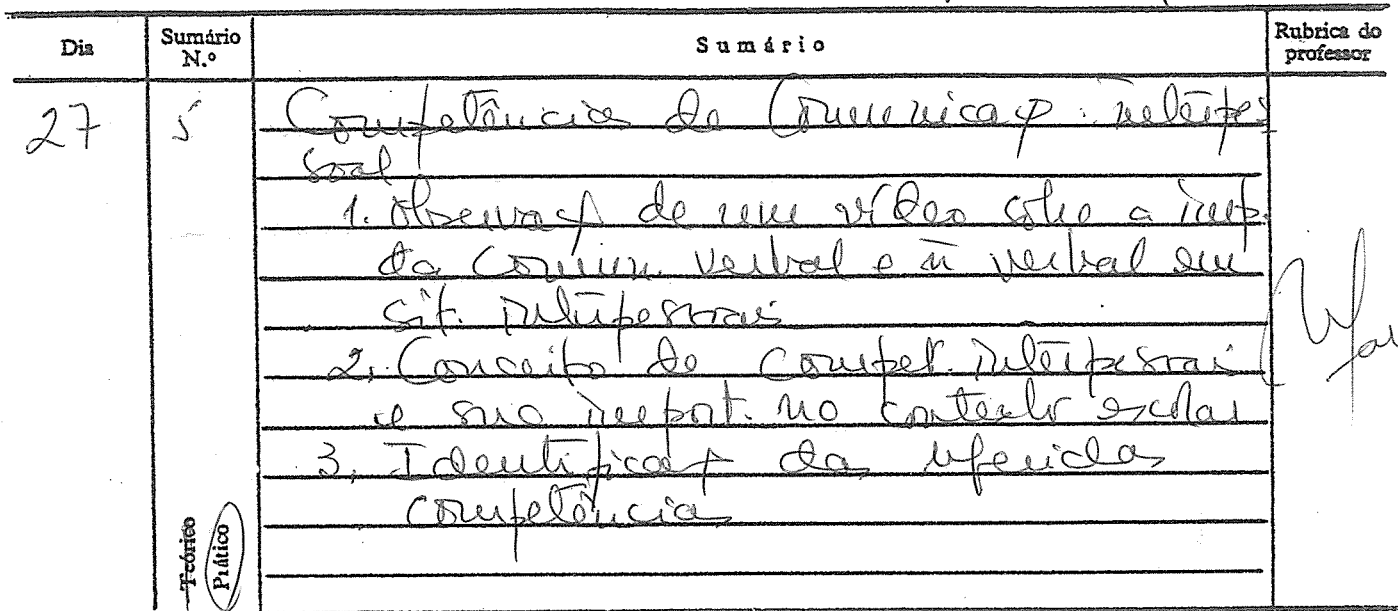 Dia Sumário N.º Sumário Rubrica do professor
27 5 Competências de Comunicaç. interpes
soal
1. Observaç de um vídeo sobre a imp.
da Comun. verbal e ñ verbal em
sit. interpessoais
2. Conceito de Compet. interpessoais
e sua import. no contexto escolar
3. Identificaç das referidas
competências
Teórico
Prático